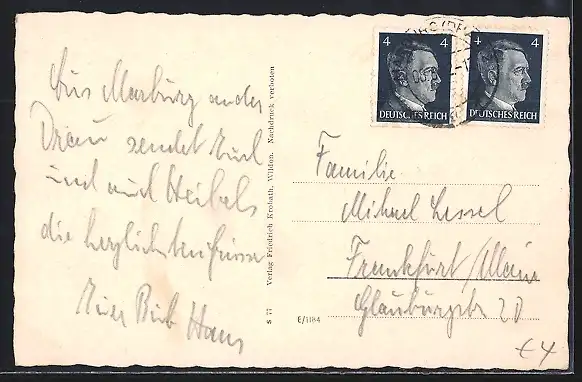 Aus Marburg an der
Drau sendet Euch
und auch Heibels
die herzlichsten Grüsse
Euer Bub Hans
S 77 Verlag Friedrich Krobath, Wildon. Nachdruck verboten
E/1184
4 4
DEUTSCHES REICH
4 4
DEUTSCHES REICH
Familie
Michael Lessel
Frankfurt/Main
Glauburgstr 20
€4